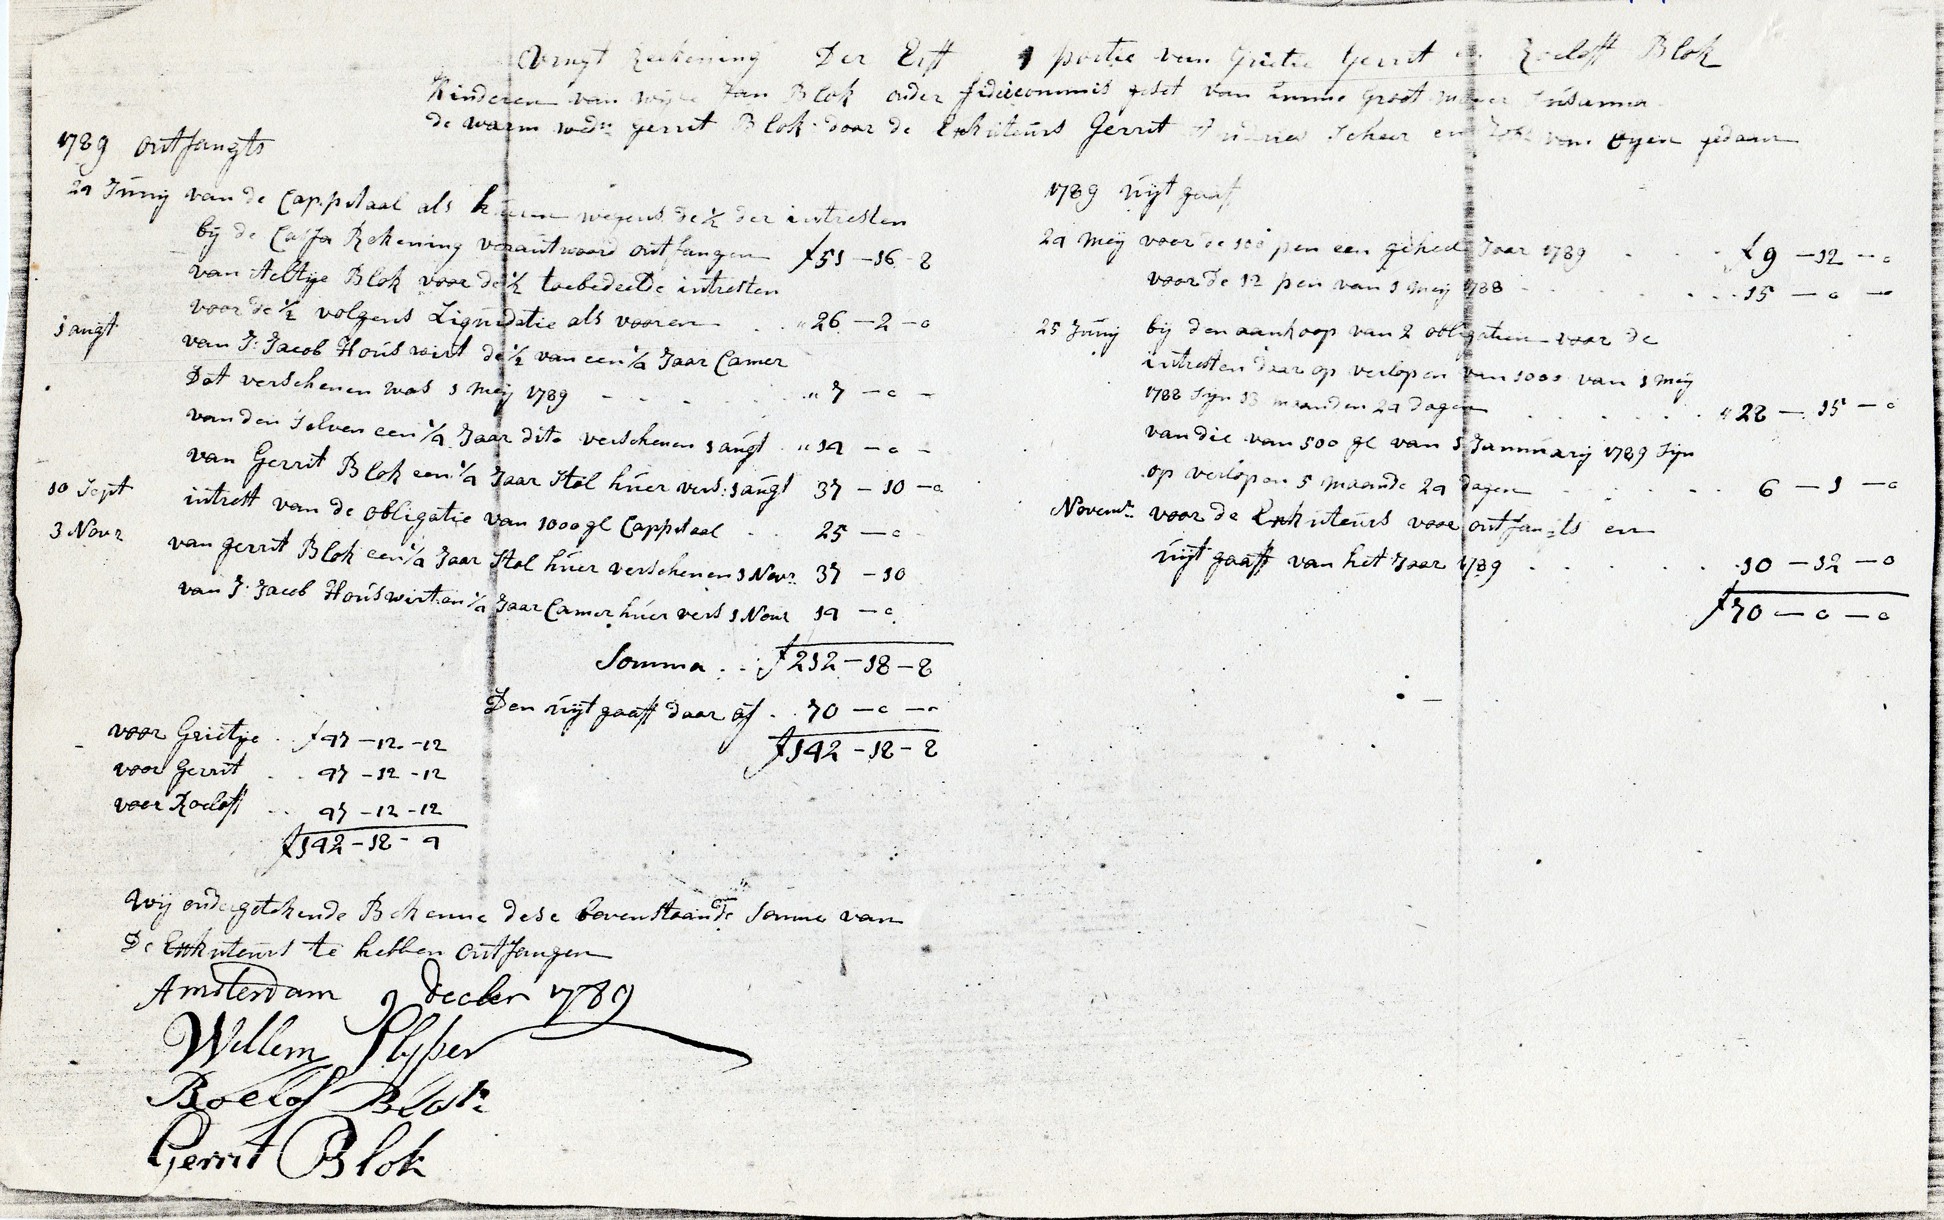 Vrugt Reekening Der Erff portie van Grietie Gerrit en Roeloff Blok
Kinderen van wijle Jan Blok onder fideicommis geset van Groot
de warm wedu gerrit Blok door de Gerrit Scheer en van Oyen gedaan
1789 ontfangts
24 Junij van de Cappitaal als wegens de ½ der intresten
bij de Cassa Rekening verantwoord ontfangen f 51 - 16 - 8
van Aeltije Blok voor de ½ toebedeelde intresten
voor de ½ volgens Liquidatie als vooren . . " 26 - 2 - 0
1 augt van J: Jacob Houswirt de ½ van een ¼ Jaar Camer
Dat verschenen was 1 Meij 1789 - - - - " 7 - 0 -
van den selven een ¼ Jaar dito verschenen 1 augt " 14 - 0 -
van Gerrit Blok een ¼ Jaar Stal huer vers: 1 augt 37 - 10 - 0
10 Sept intrest van de obligatie van 1000 gl Cappitaal . . 25 - 0
3 Novr van gerrit Blok een ¼ Jaar Stal huer verschenen 1 Novr 37 - 10
van J: Jacob Houswirt en ¼ Jaar Camer huer vers 1 Novr 14 - 0
Somma . . f 212 - 18 - 8
Den uijt gaaff daar af . . 70 - 0 - 0
f 142 - 18 - 8
voor Grietije . . f 47 - 12 - 12
voor Gerrit . . 47 - 12 - 12
voor Roeloff . . 47 - 12 - 12
f 142 - 18 - 4
1789 uijt gaaf
24 Meij voor de 100 pen een geheel Jaar 1789 . . . f 9 - 12 - 0
voor de 12 pen van 1 Meij 1788 . . . 15 - 0 -
25 Junij bij den aankoop van 2 obligatien voor de
intresten daar op verlopen van 1000 van 1 Meij
1788 sijn 13 maanden 24 dagen . . . " 28 - 15 - 0
van die van 500 gl van 1 Jannuarij 1789 sijn
op verlopen 5 maande 24 dagen . . . 6 - 1 - 0
Novemr voor de voor ontfangts en
uijt gaaff van het Jaar 1789 . . . 10 - 12 - 0
f 70 - 0 - 0
Wij ondergetekende Bekenne dese bovenstaande somme van
De te hebben ontfangen
Amsterdam 9 decber 1789
Willem Slijper
Roelof Blok
Gerrit Blok